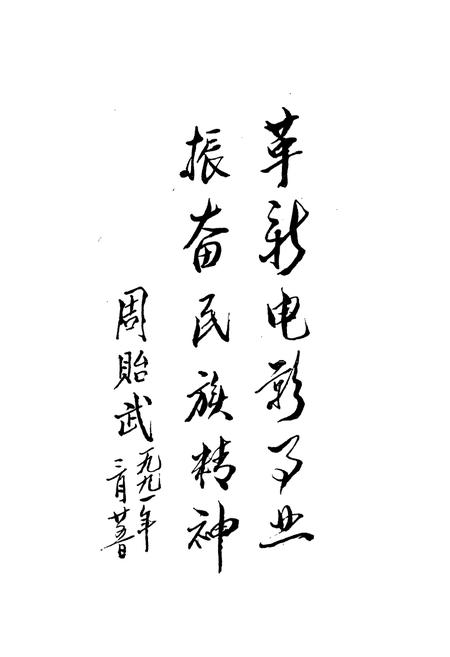 革新电影事业
振奋民族精神
周贻武
一九九一年
三月廿五日